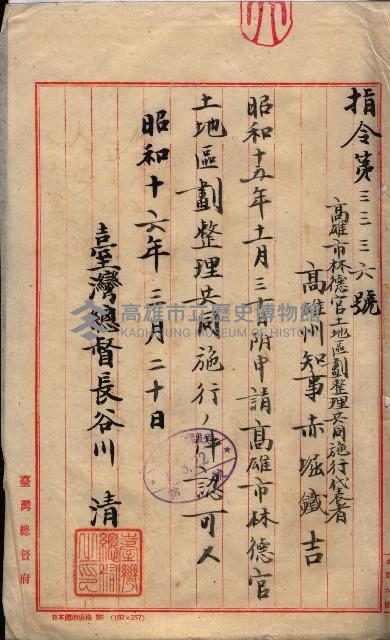 指令第三三三六號
高雄市林德官土地區劃整理共同施行代表者
高雄州知事赤堀鐵吉
昭和十五年十一月三十日附申請高雄市林德官
土地區劃整理共同施行ノ件認可ス
昭和十六年三月二十日
臺灣總督長谷川 清
臺灣總督之印
臺灣總督府
日本標準規格 B5 (182×257)
高雄市立歷史博物館
KAOHSIUNG MUSEUM OF HISTORY